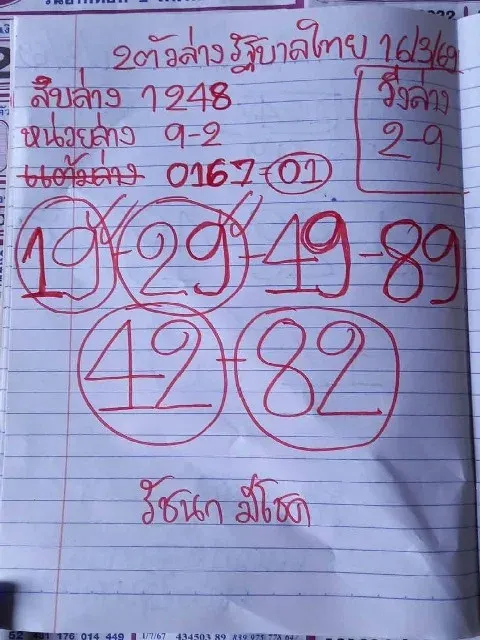 2ตัวล่าง รัฐบาลไทย 16/3/69
สิบล่าง 1248
วิ่งล่าง
หน่วยล่าง 9-2
2-9
แต้มล่าง 0167-01
19-29-49-89
42-82
รัชนก มีโชค
52 431 176 014 449 1/7/67 434503 89